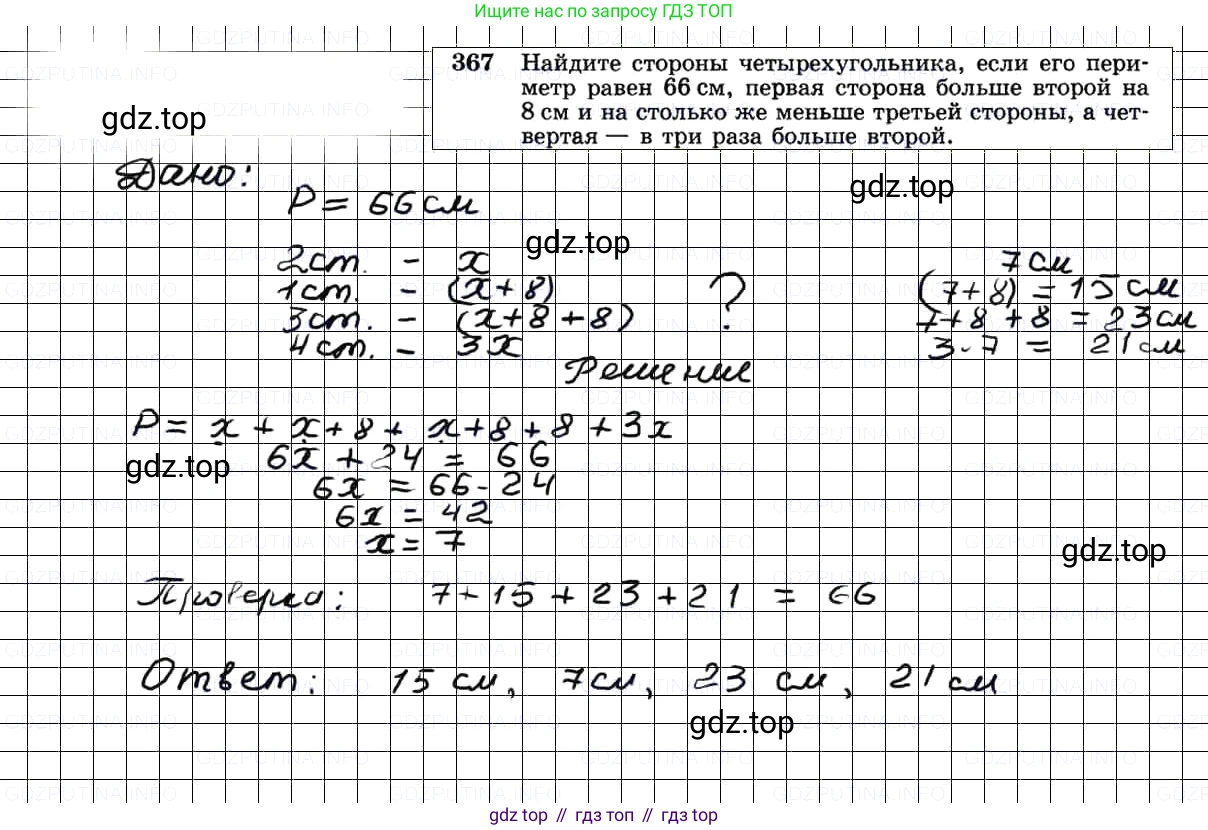 Ищите нас по запросу ГДЗ ТОП
367 Найдите стороны четырехугольника, если его пери-
метр равен 66 см, первая сторона больше второй на
8 см и на столько же меньше третьей стороны, а чет-
вертая — в три раза больше второй.
gdz.top
Дано:
gdz.top
P = 66 см
gdz.top
2 ст. - x
7 см
1 ст. - (x+8)
?
(7+8) = 15 см
3 ст. - (x+8+8)
7+8+8 = 23 см
4 ст. - 3x
3·7 = 21 см
Решение
P = x + x + 8 + x + 8 + 8 + 3x
gdz.top
6x + 24 = 66
6x = 66 - 24
6x = 42
x = 7
gdz.top
Проверка: 7+15+23+21 = 66
Ответ: 15 см, 7 см, 23 см, 21 см
gdz.top
gdz top // гдз топ // gdz top